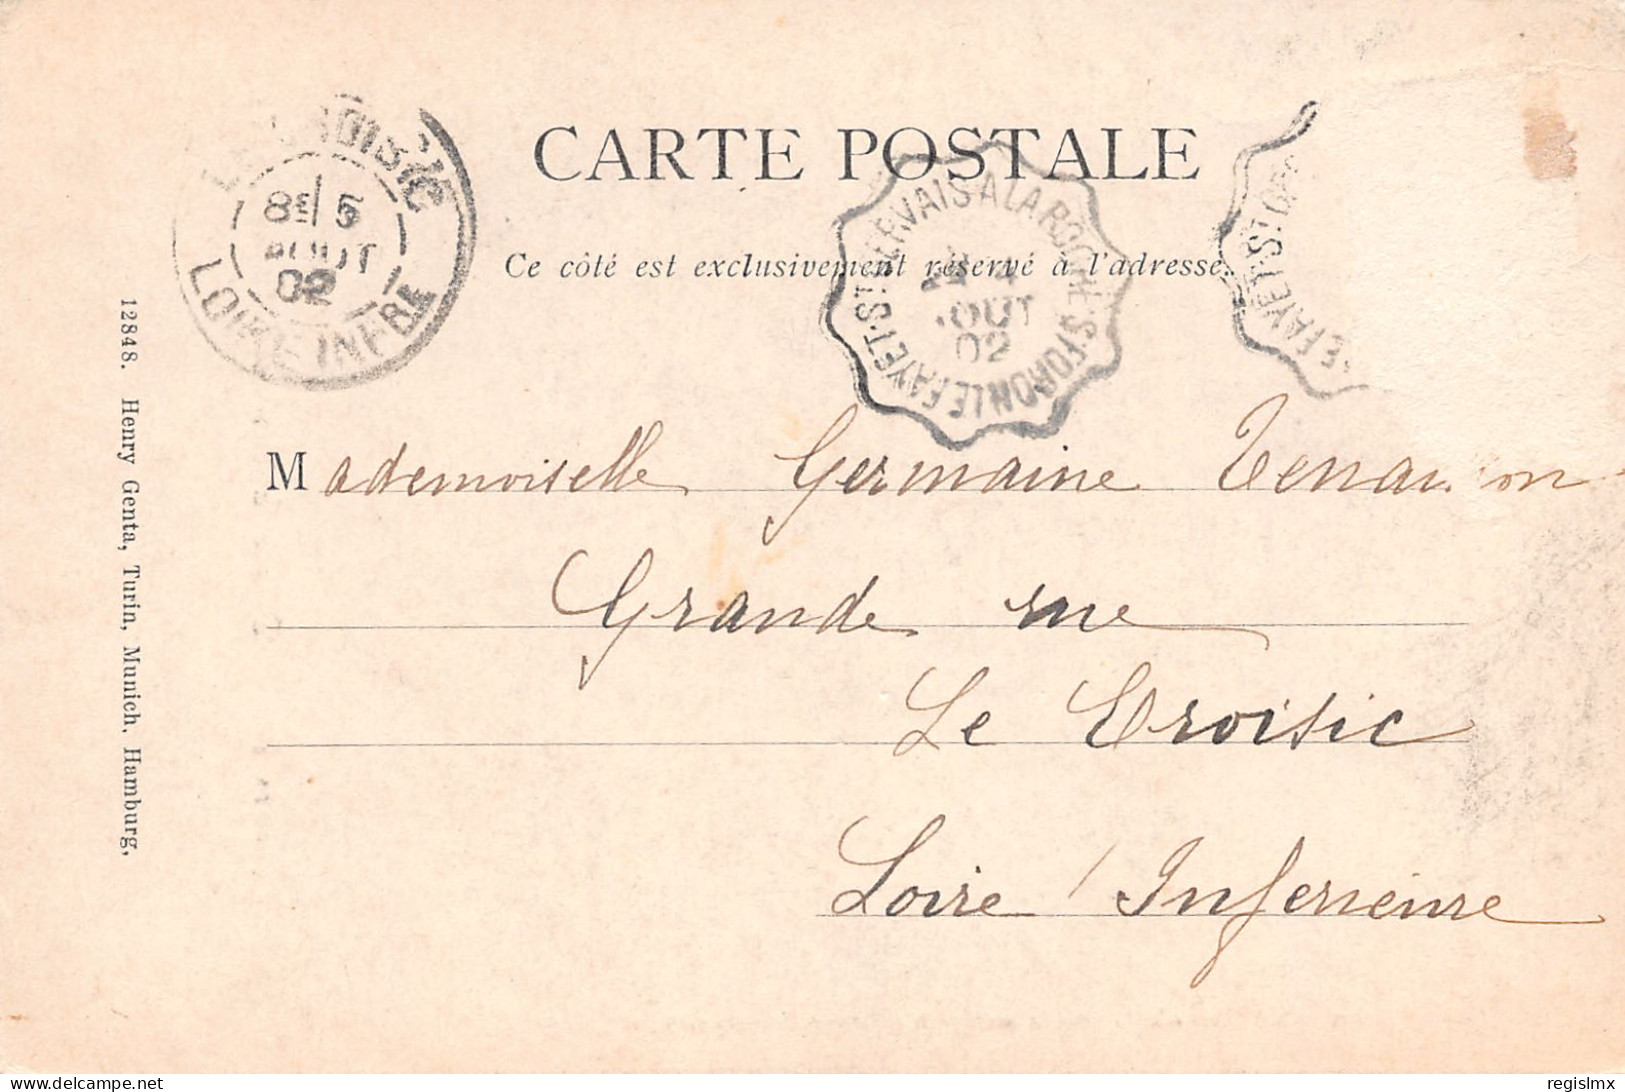 CARTE POSTALE
Ce côté est exclusivement réservé à l'adresse.
LE CROISIC
8E 5
AOUT
02
LOIRE INFRE
LE FAYET-ST GERVAIS A LA ROCHE-S-FORON
4
AOUT
02
LE FAYET-ST GER
Mademoiselle Germaine
Grande rue
Le Croisic
Loire Inferieure
12848. Henry Genta, Turin, Munich, Hamburg,
regislmx